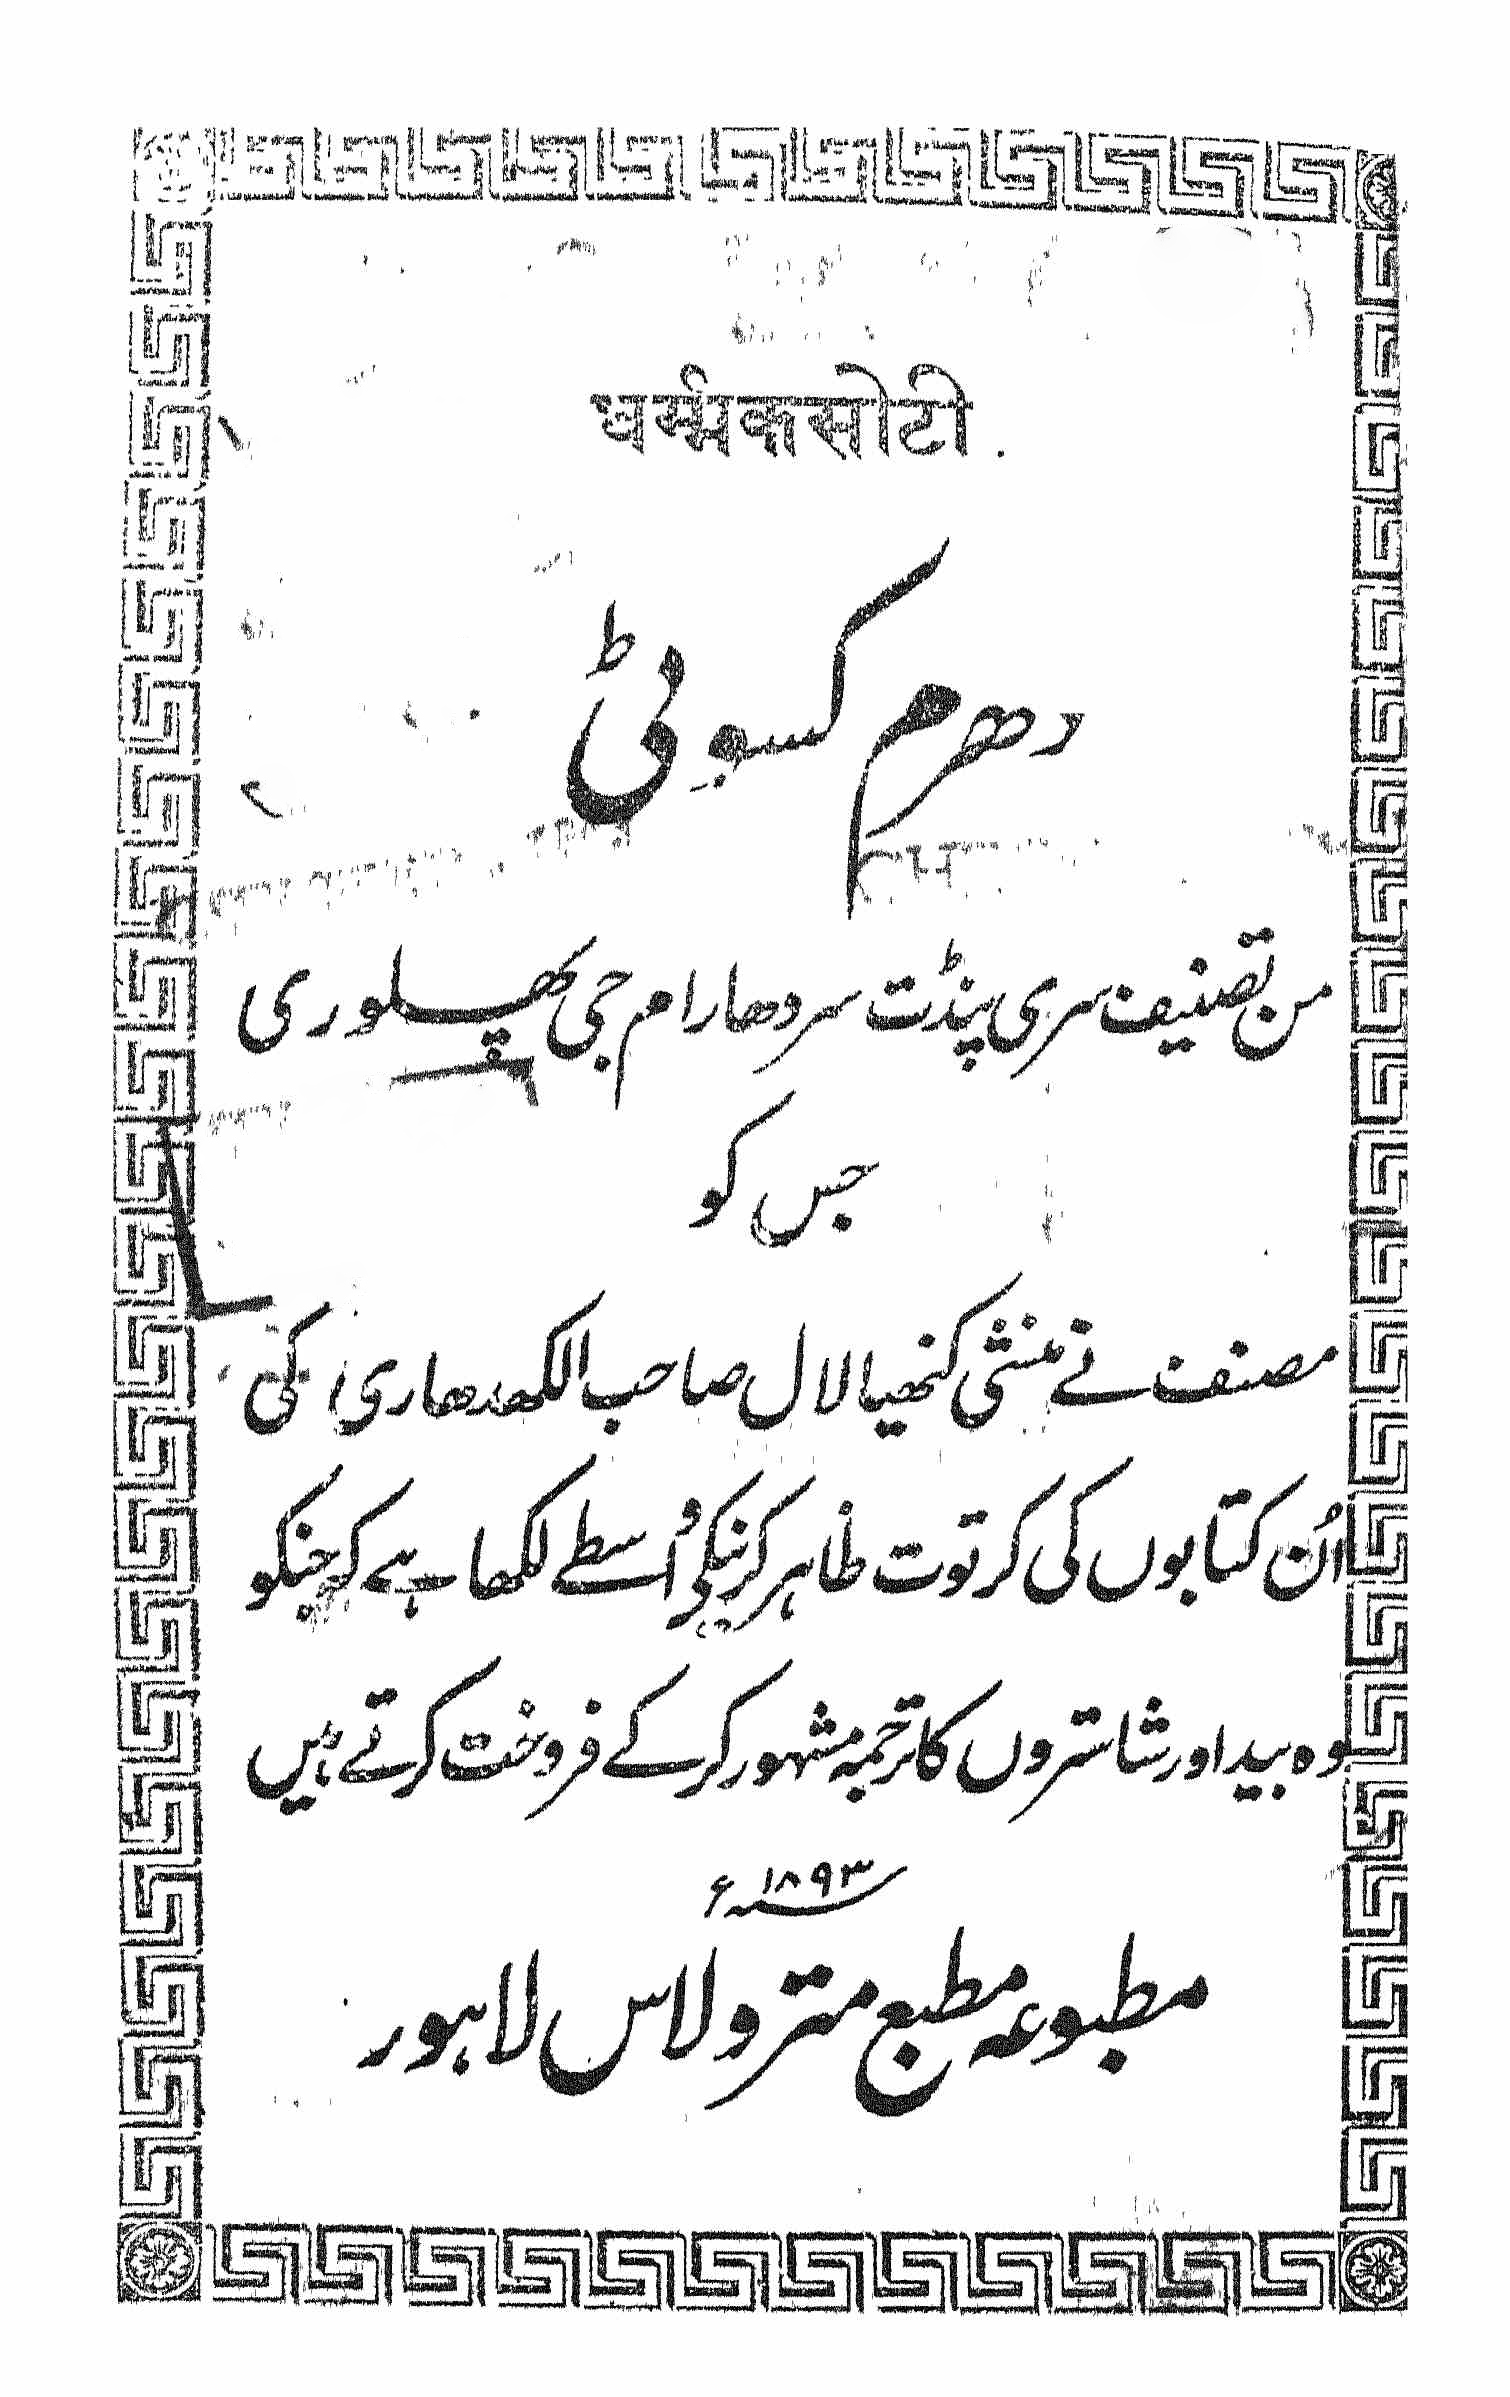 धर्म्मकसोटी.
دھرم کسوٹی
من تصنیف سری پنڈت سردھارام جی پھلوری
جس کو
مصنف نے منشی کنھیا لال صاحب الکھدھاری کی
اُن کتابوں کی کرتوت ظاہر کرنیکی واسطے لکھا ہے کہ جنکو
وہ بید اور شاستروں کا ترجمہ مشہور کر کے فروخت کرتے ہیں
سنہ ۱۸۹۳ء
مطبوعہ مطبع مترولاس لاہور